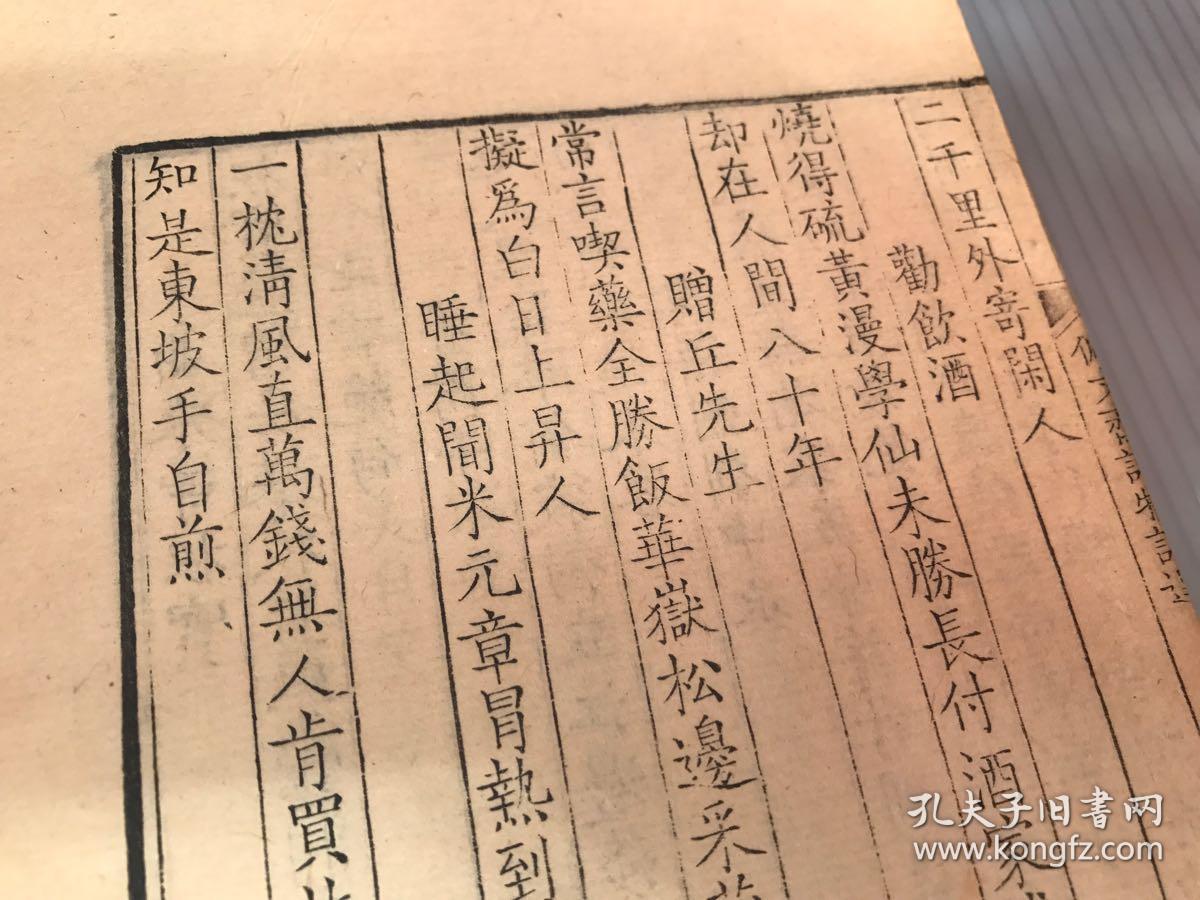 二千里外寄閑人
勸飲酒
燒得硫黃漫學仙未勝長付酒家
却在人間八十年
贈丘先生
常言喫藥全勝飯華嶽松邊采
擬為白日上昇人
睡起聞米元章冒熱到
一枕清風直萬錢無人肯買
知是東坡手自煎
孔夫子旧書网
www.kongfz.com